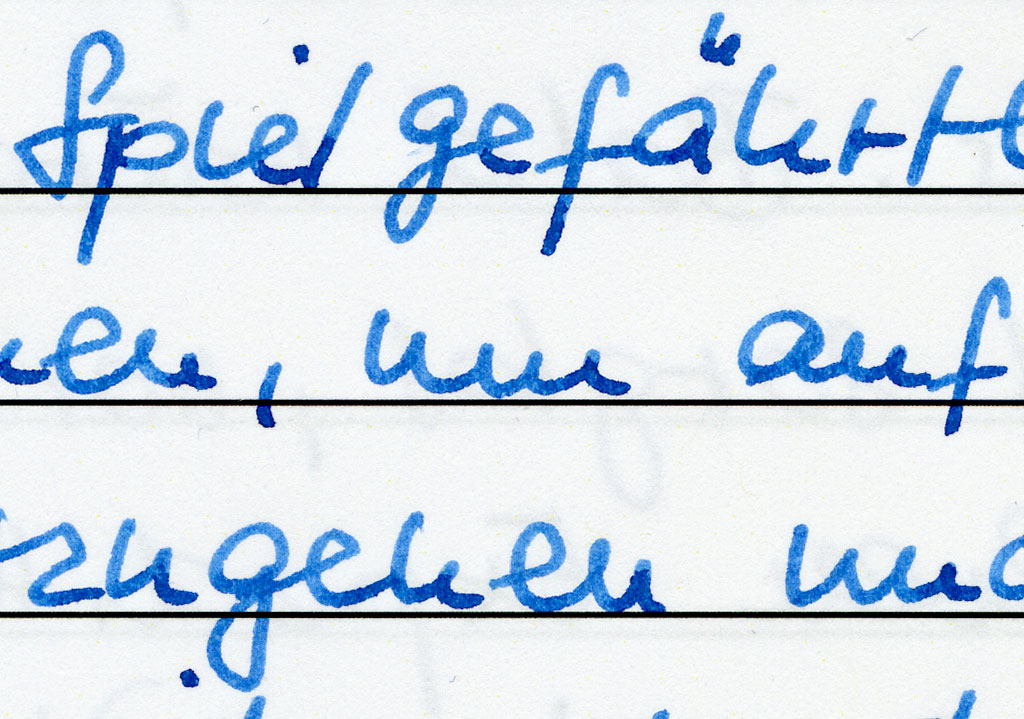 Spielgefährte
nen, um auf
szugehen und